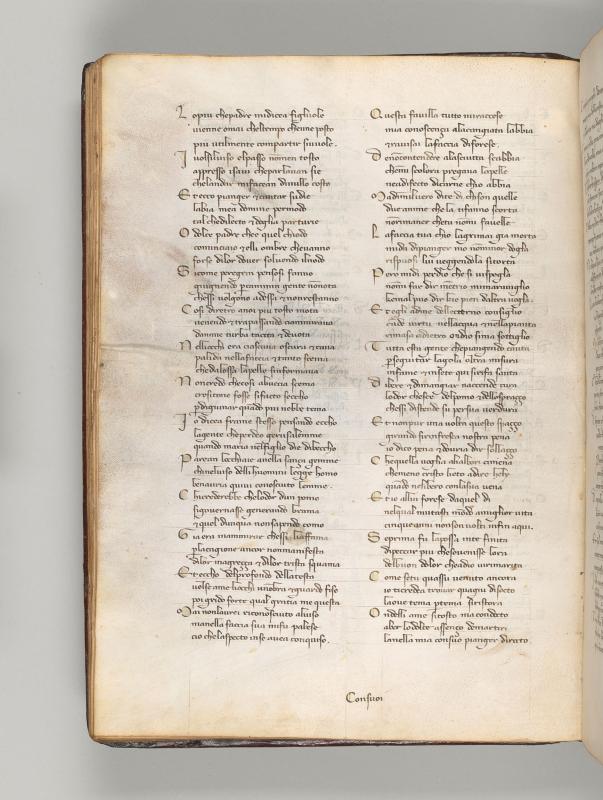 Lopiu chepadre midicea figliuole
vienne omai cheltempo chenne posto
piu utilmente compartir siuuole.
Iuolsiluiso elpasso nomen tosto
appresso isaui cheparlauan sie
chelandar mifacean dinullo costo
Et ecco pianger & cantar sudie
labia mea domine permodo
tal chediletto & doglia parturie
O dolce padre che quel chiodo
cominciaio & elli ombre cheuanno
forse dilor douer soluendo ilnodo
Sicome peregrin pensosi fanno
giugnendo per camin gente nonota
chessi uolgono adessi & nonrestanno
Cosi diretro anoi piu tosto mota
uenendo & trapassando nammiraua
danime turba tacita & deuota
Nellocchi era ciascuna oscura & caua
palida nellafaccia & tanto scema
chedalossa lapelle sinformaua
Noncredo checosi abuccia strema
eresitone fosse sifacto seccho
perdigiunar quando piu nebbe tema
Io dicea frame stesso pensando eccho
lagente cheperdeo gerusalemme
quando maria nelfiglio die dibeccho
Parean locchiaie anella sança gemme
chineluiso delli huomini legge homo
benauria quiui conosciuto lemme.
Chicrederebbe chelodor dun pomo
sigouernasse generando brama
& quel dunqua nonsapendo como
Gia era inammirar chessi liaffama
perlacagione ancor nonmanifesta
dilor magreçça & dilor trista squama
Et eccho delprofondo dellatesta
uolse ame liocchi unombra & guardo fiso
poi grido forte qual gratia me questa
Mai nonlaurei riconosciuto aluiso
manella facia sua mifu palese
cio chelaspecto inse auea conquiso.
Questa fauilla tutto miraccese
mia conoscença alacangiata labbia
& rauisai lafaccia diforese.
Denoncontendere alasciutta scabbia
chemi scolora pregaua lapelle
neadifecto dicarne chio abbia
Madimiluero dite di chison quelle
due anime che la tifanno scorta
nonrimaner cheno nomi fauelle
Lafaccia tua chio lagrimai gia morta
midi dipianger mo nonminor dogla
rispuosi lui ueggendola sitorta
Pero midi perdio che si uisfogla
nonmi far dir mentrio mimarauiglio
chemal puo dir chie pien daltra uogla.
Et egli adme delleeterno consiglio
cade uirtu nellacqua & nellapianta
rimasa adietro ondio sima sottiglio
Tutta esta gente chepiangendo canta
perseguitar lagola oltra misura
infame & insete quisirifa santa
Dibere & dimangiar naccende cura
lodor chesce delpomo & dellosprazço
chessi distende su persua uerdura
Et nonpur una uolta questo spaçço
girando sirinfresca nostra pena
io dico pena & douria dir sollaçço
Chequella uoglia alialbori cimena
chemeno cristo lieto adire hely
quando nelibero conlasua uena
Et io allui forese daquel di
nelqual mutasti mondo amiglior uita
cinqueanni nonson uolti infin aqui.
Seprima fu lapossa inte finita
dipeccar piu chesouenisse lora
delbuon dolor cheadio nerimarita
Come setu quassu uenuto ancora
io ticredea trouar quagiu disocto
laoue tema ptema siristora
Ondelli ame sitosto ma condocto
aber lodolce assenço demartiri
lanella mia consuo pianger dirocto.
Consuoi